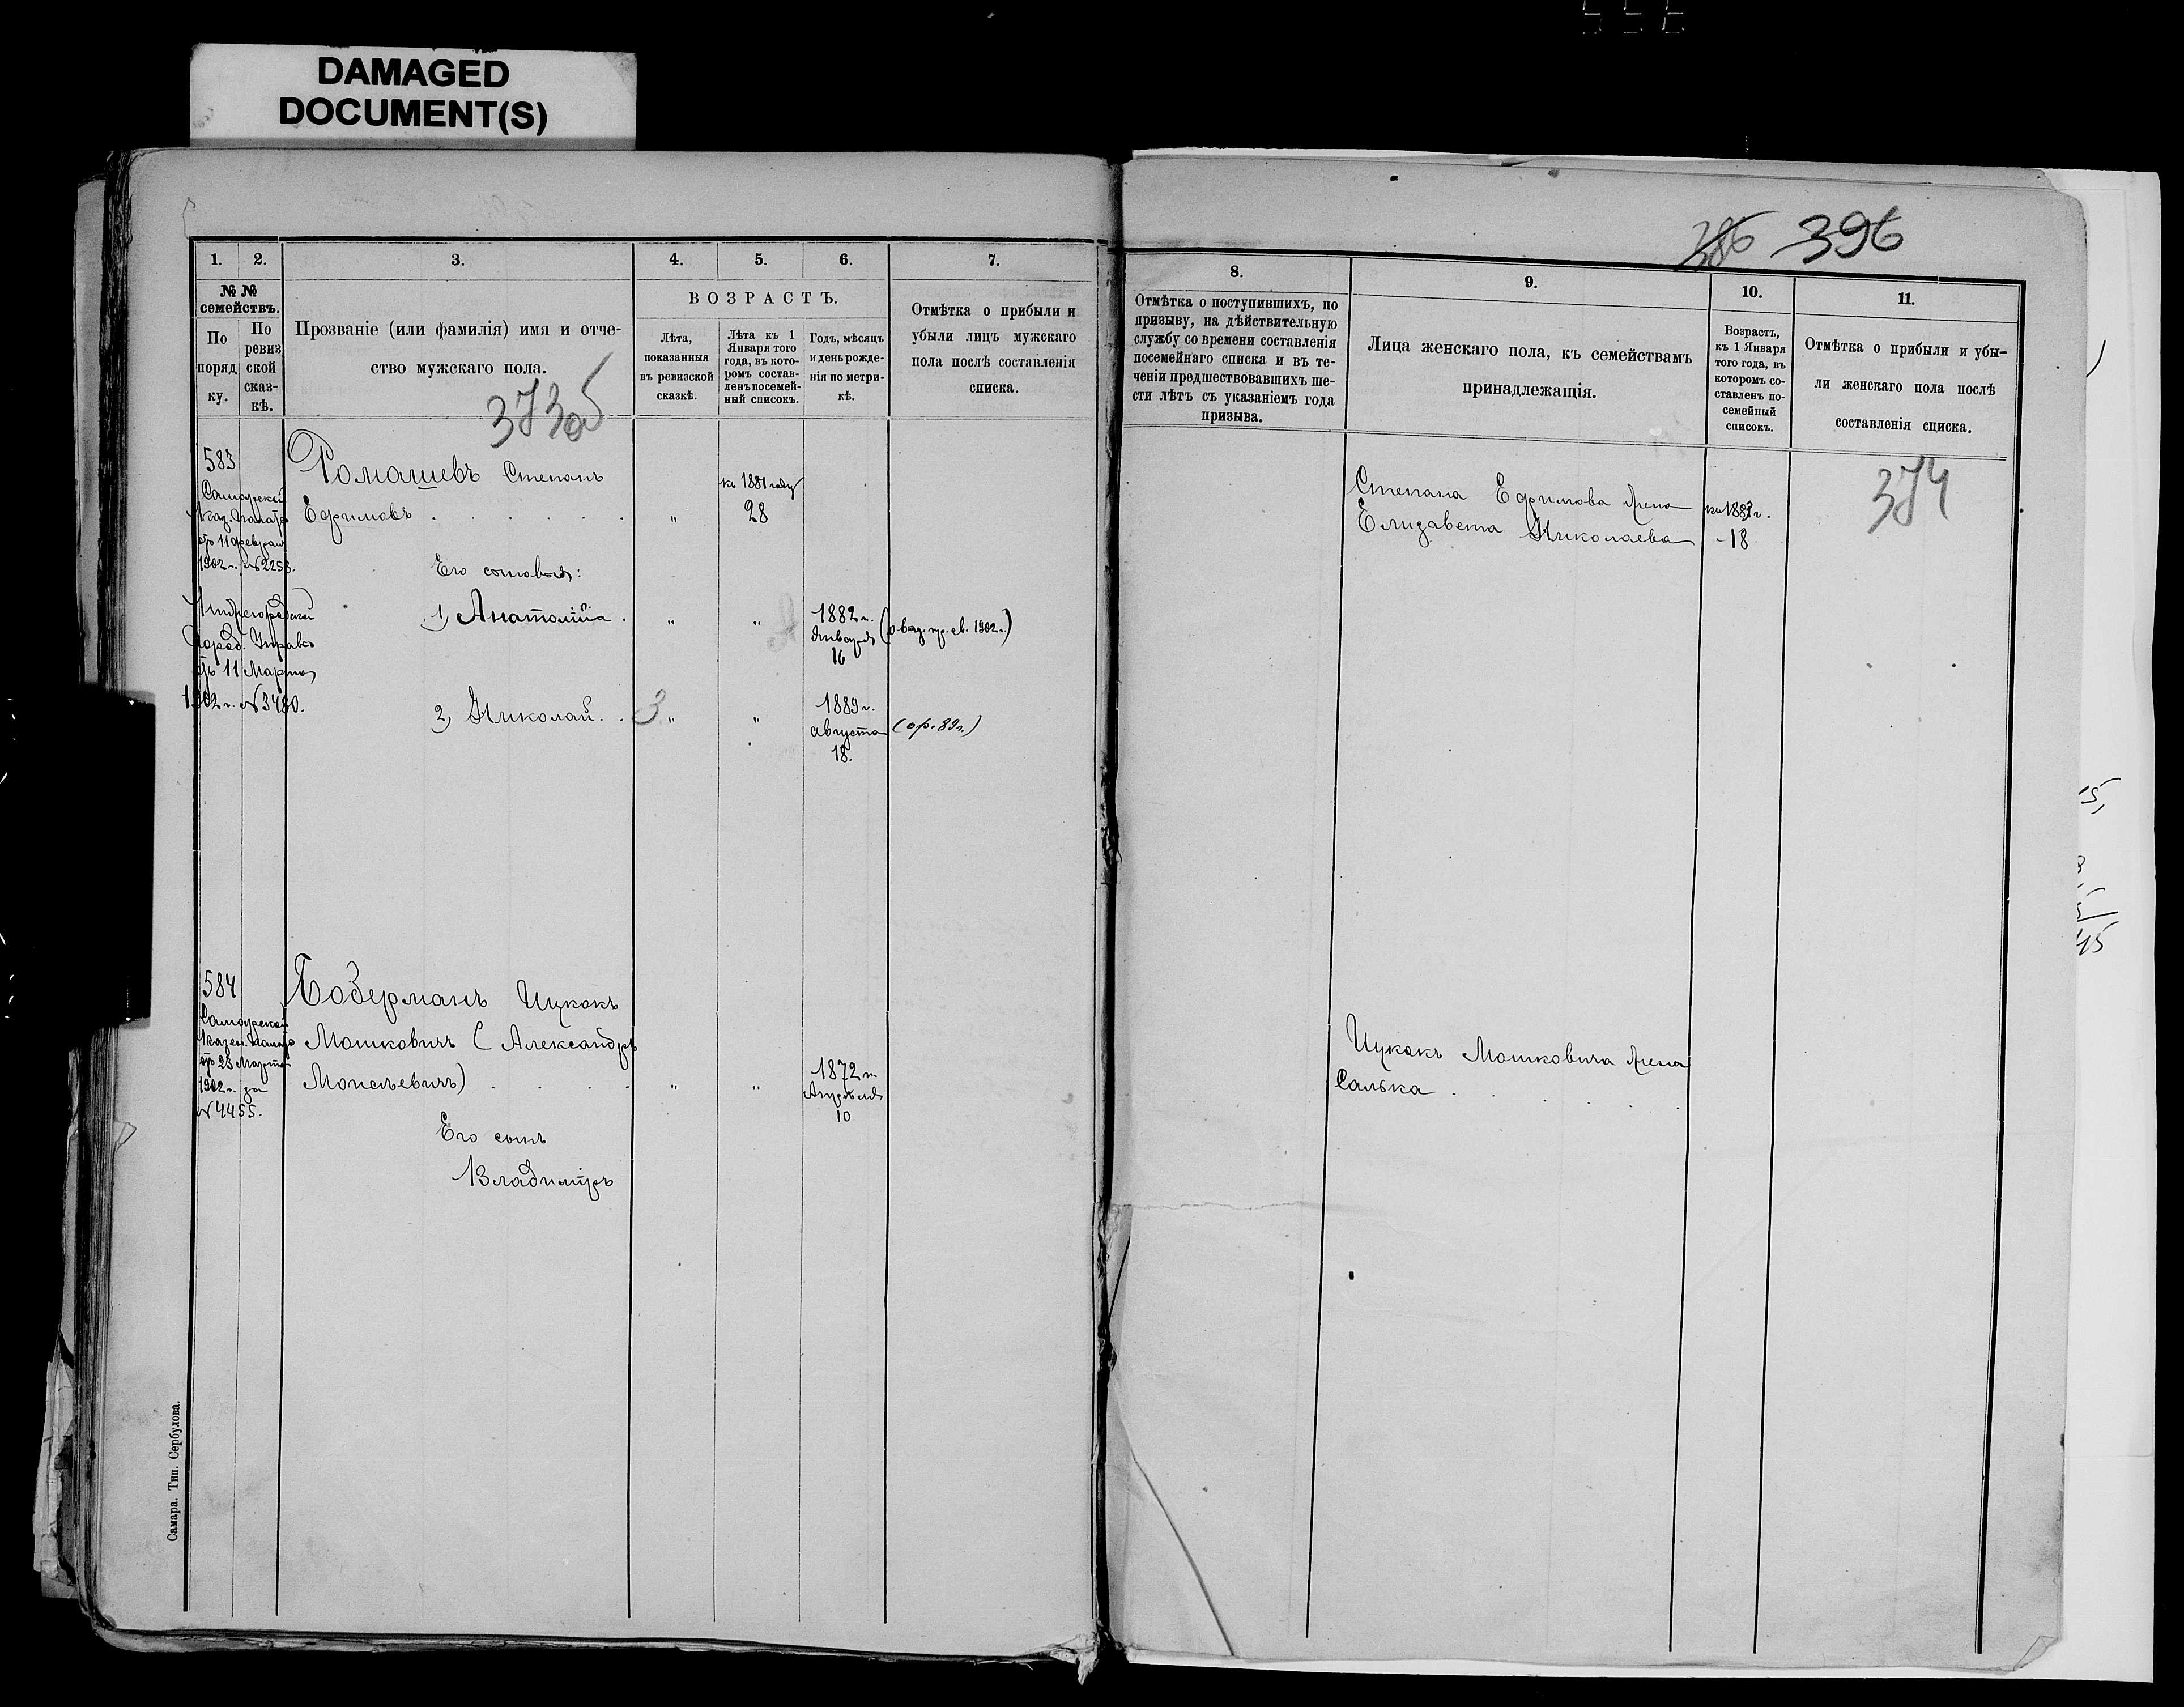 DAMAGED
DOCUMENT(S)
386 396
1. 2. 3. 4. 5. 6. 7.
№ №
семействъ.
По
поряд
ку.
По
ревиз
ской
сказ-
кѣ.
Прозваніе (или фамилія) имя и отче-
ство мужскаго пола.
373об
ВОЗРАСТЪ.
Лѣта,
показанныя
въ ревизской
сказкѣ.
Лѣта къ 1
Января того
года, въ кото-
ромъ состав-
ленъ посемей-
ный списокъ.
Годъ, мѣсяцъ
и день рожде-
нія по метри-
кѣ.
Отмѣтка о прибыли и
убыли лицъ мужскаго
пола послѣ составленія
списка.
8. 9. 10. 11.
Отмѣтка о поступившихъ, по
призыву, на дѣйствительную
службу со времени составленія
посемейнаго списка и въ те-
ченіи предшествовавшихъ ше-
сти лѣтъ съ указаніемъ года
призыва.
Лица женскаго пола, къ семействамъ
принадлежащія.
Возрастъ,
къ 1 Января
того года, въ
которомъ со-
ставленъ по-
семейный
списокъ.
Отмѣтка о прибыли и убы-
ли женскаго пола послѣ
составленія списка.
374
583
Самарской
Каз. Палаты
отъ 11 февраля
1902 г. №2253.
Город. Управы
отъ 11 Марта
1902 г. №3480.
Ромашевъ Степанъ
Ефимовъ . . . . . „ 28
къ 1881 году
Его сыновья:
1) Анатолій . „ „ 1882 г.
Января
16
1902 г.)
2) Николай . . 3 „ „ 1889 г.
августа
18.
(ор. 89 г.)
Степана Ефимова жена
Елизавета Николаева
18
584
Самарской
Казен. Палаты
отъ 23 Марта
1902 г. за
№4455.
Боберманъ Ицкокъ
Мошковичъ (Александръ
Моисѣевичъ) . . . . „ „ 1872 г.
Апрѣля
10
Его сынъ
Владиміръ
Ицкокъ Мошковича жена
Салька . . . . . .
Самара. Тип. Сербулова.